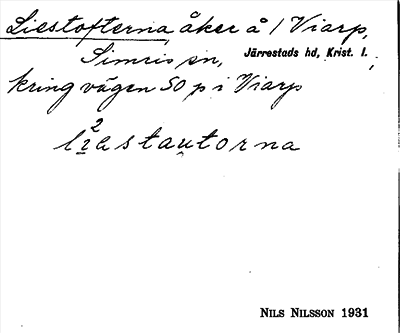 Liestofterna, åker å 1 Viarp,
Simris sn, Järrestads hd, Krist. l.;
kring vägen SO p i Viarp
li²estautorna
NILS NILSSON 1931